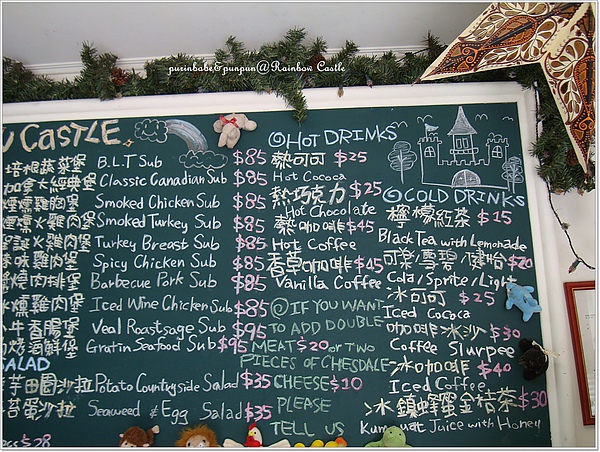 purinbabe&punpun@Rainbow Castle
CASTLE
培根蔬菜堡 B.L.T Sub $85
加拿大經典堡 Classic Canadian Sub $85
煙燻雞胸堡 Smoked Chicken Sub $85
煙燻火雞肉堡 Smoked Turkey Sub $85
火雞肉堡 Turkey Breast Sub $85
味雞肉堡 Spicy Chicken Sub $85
燻肉排堡 Barbecue Pork Sub $85
雞肉堡 Iced Wine Chicken Sub $85
小牛香腸堡 Veal Roastsage Sub $95
焗烤海鮮堡 Gratin Seafood Sub $95
SALAD
芋田園沙拉 Potato Countryside Salad $35
苔蛋沙拉 Seaweed & Egg Salad $35
$28
HOT DRINKS
熱可可 $25
Hot Cococa
熱巧克力 $25
Hot Chocolate
熱咖啡 $45
Hot Coffee
香草咖啡 $45
Vanilla Coffee
IF YOU WANT
TO ADD DOUBLE
MEAT $20 or TWO
PIECES OF CHESDALE
CHEESE $10
PLEASE
TELL US
COLD DRINKS
檸檬紅茶 $15
Black Tea with Lemonade
可樂/雪碧/健怡 $20
Cola/Sprite/Light
冰可可 $25
Iced Cococa
咖啡冰沙 $30
Coffee Slurpee
冰咖啡 $40
Iced Coffee
冰鎮蜂蜜金桔茶 $30
Kumquat Juice with Honey